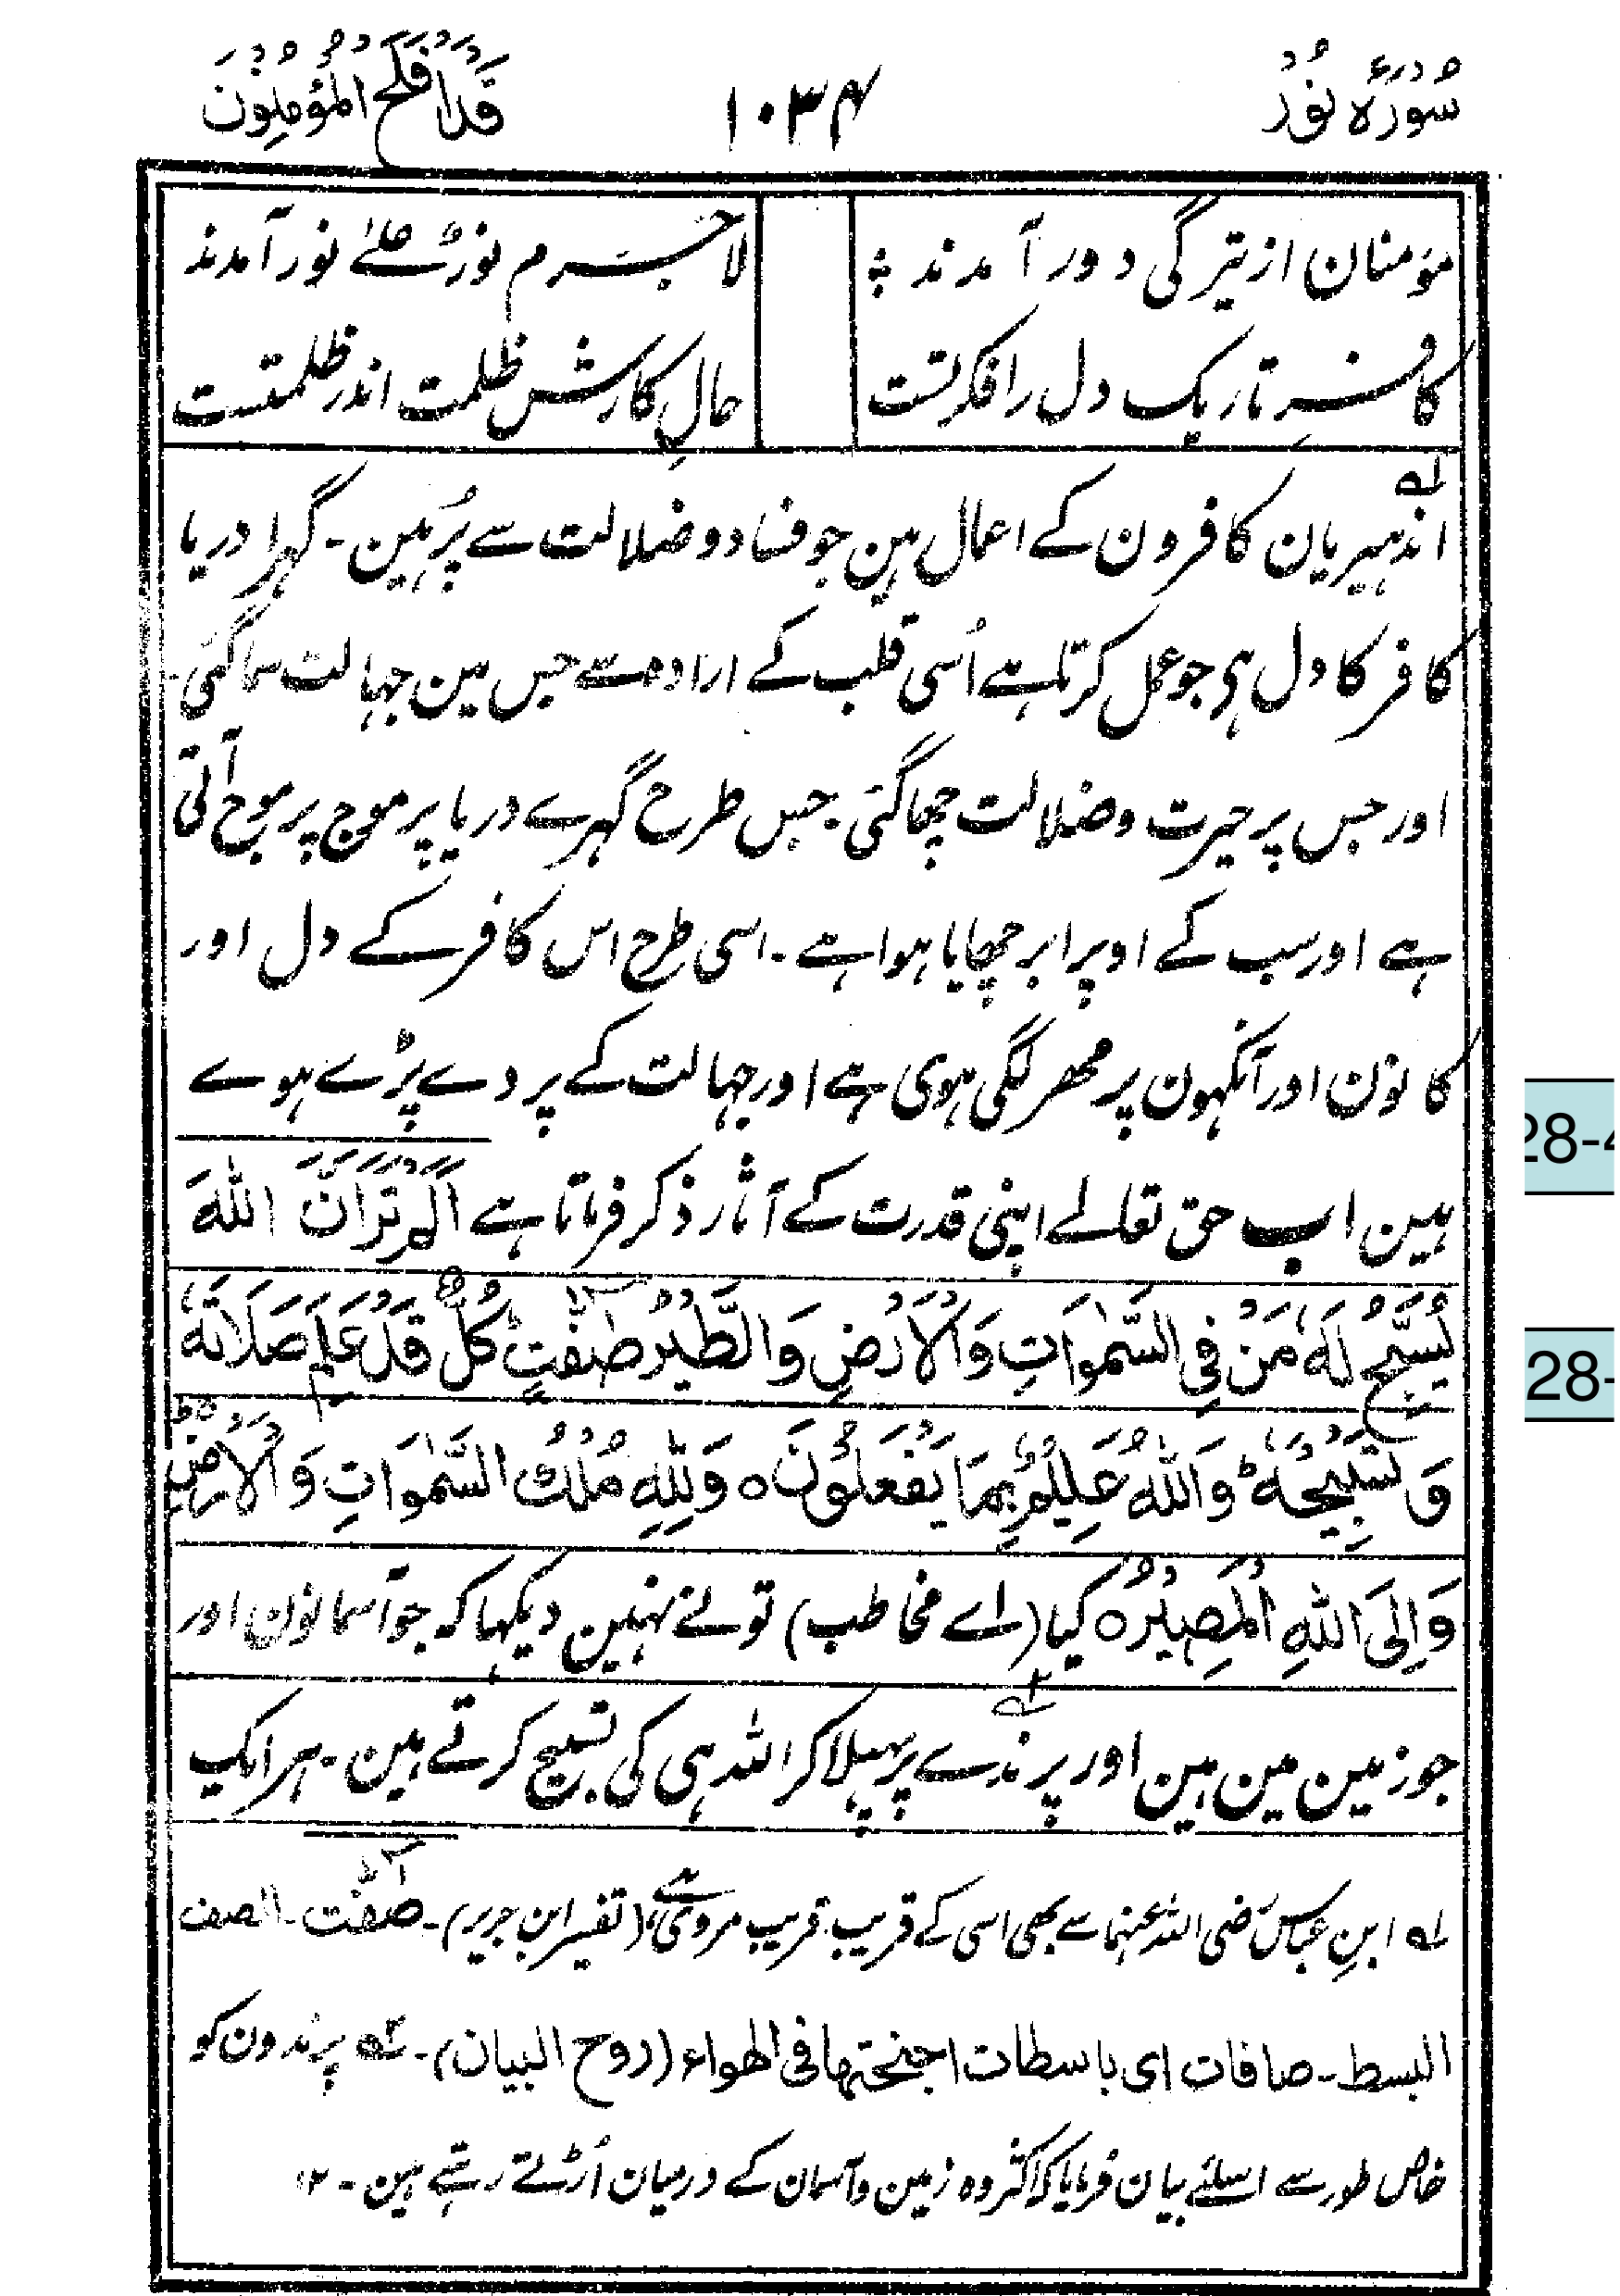 سُوْرَۂ نُوْر
۱۰۳۴
قَدْ اَفْلَحَ الْمُؤْمِنُوْنَ
مؤمنان از تیرگی دور آمدند ؛ لاجرم نورٌ علےٰ نور آمدند
کافرِ تاریک دل را فکرتست حالِ کارش ظلمت اندر ظلمتست
۱؎
اندہیریان کافرون کے اعمال ہین جو فساد و ضلالت سے پُر ہین ۔ گہرا دریا
کافر کا دل ہی جو عمل کرتا ہے اُسی قلب کے ارادہ سے جس مین جہالت سما گئی ۔
اور جس پر حیرت و ضلالت چھا گئی ۔ جس طرح گہرے دریا پر موج پر موج آتی
ہے اور سب کے اوپر ابر چھایا ہوا ہے ۔ اسی طرح اس کافر کے دل اور
کانون اور آنکہون پر مھر لگی ہوی ہے اور جہالت کے پردے پڑے ہوے
ہین اب حق تعالےٰ اپنی قدرت کے آثار ذکر فرماتا ہے اَلَمْ تَرَ اَنَّ اللّٰهَ
يُسَبِّحُ لَهٗ مَنْ فِي السَّمٰوَاتِ وَالْاَرْضِ وَالطَّيْرُ صٰٓفّٰتٍ ؕ كُلٌّ قَدْ عَلِمَ صَلَاتَهٗ
وَتَسْبِيْحَهٗ ؕ وَاللّٰهُ عَلِيْمٌۢ بِمَا يَفْعَلُوْنَ ۝ وَلِلّٰهِ مُلْكُ السَّمٰوَاتِ وَالْاَرْضِ ۚ
وَاِلَى اللّٰهِ الْمَصِيْرُ ۝ کیا (اے مخاطب) تونے نہین دیکہا کہ جو آسمانون اور
جو زمین مین ہین اور پرندے ۲؎ پر پہیلا کر اللہ ہی کی تسبیح کرتے ہین ۔ ہر ایک
۱؎ ابنِ عباس رضی اللہ عنہما سے بھی اسی کے قریب قریب مروی ہے (تفسیر ابن جریر) ۔ صٰٓفّٰت ۔ الصف
البسط ۔ صافات ای باسطات اجنحتها فی الهواء (روح البیان) ۔ ۲؎ پرندون کو
خاص طور سے اسلئے بیان فرمایا کہ اکثر وہ زمین و آسمان کے درمیان اُڑتے رہتے ہین ۔ ۱۲
28-4
28-